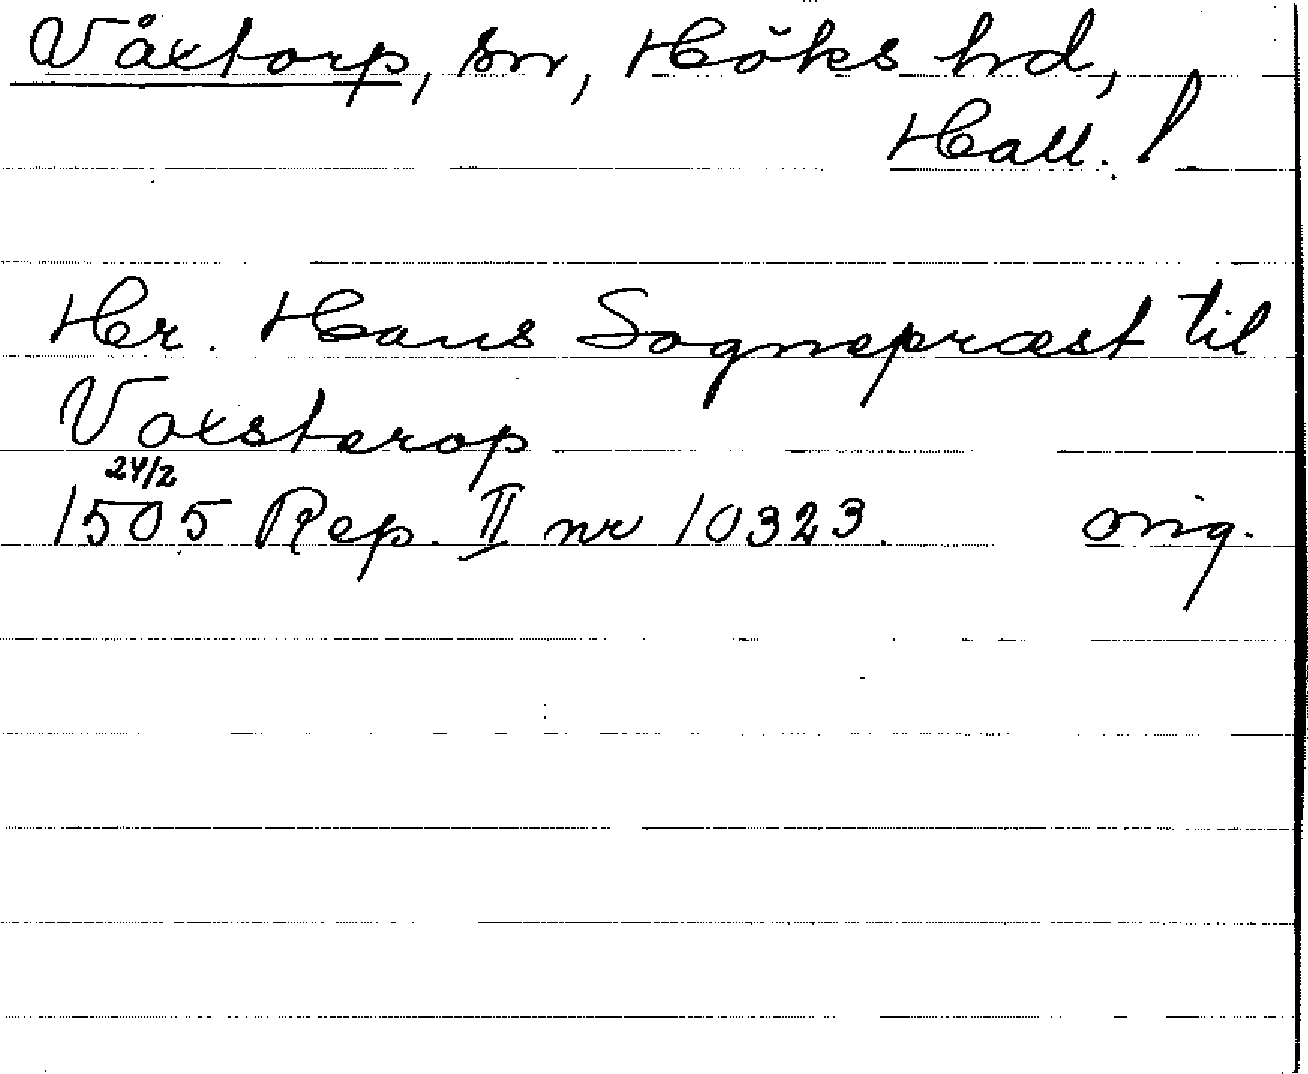 Våxtorp, sn, Höks hd,
Hall. l.
Her. Hans Sognepræst til
Voxsterop
24/2
1505 Rep. II nr 10323. orig.